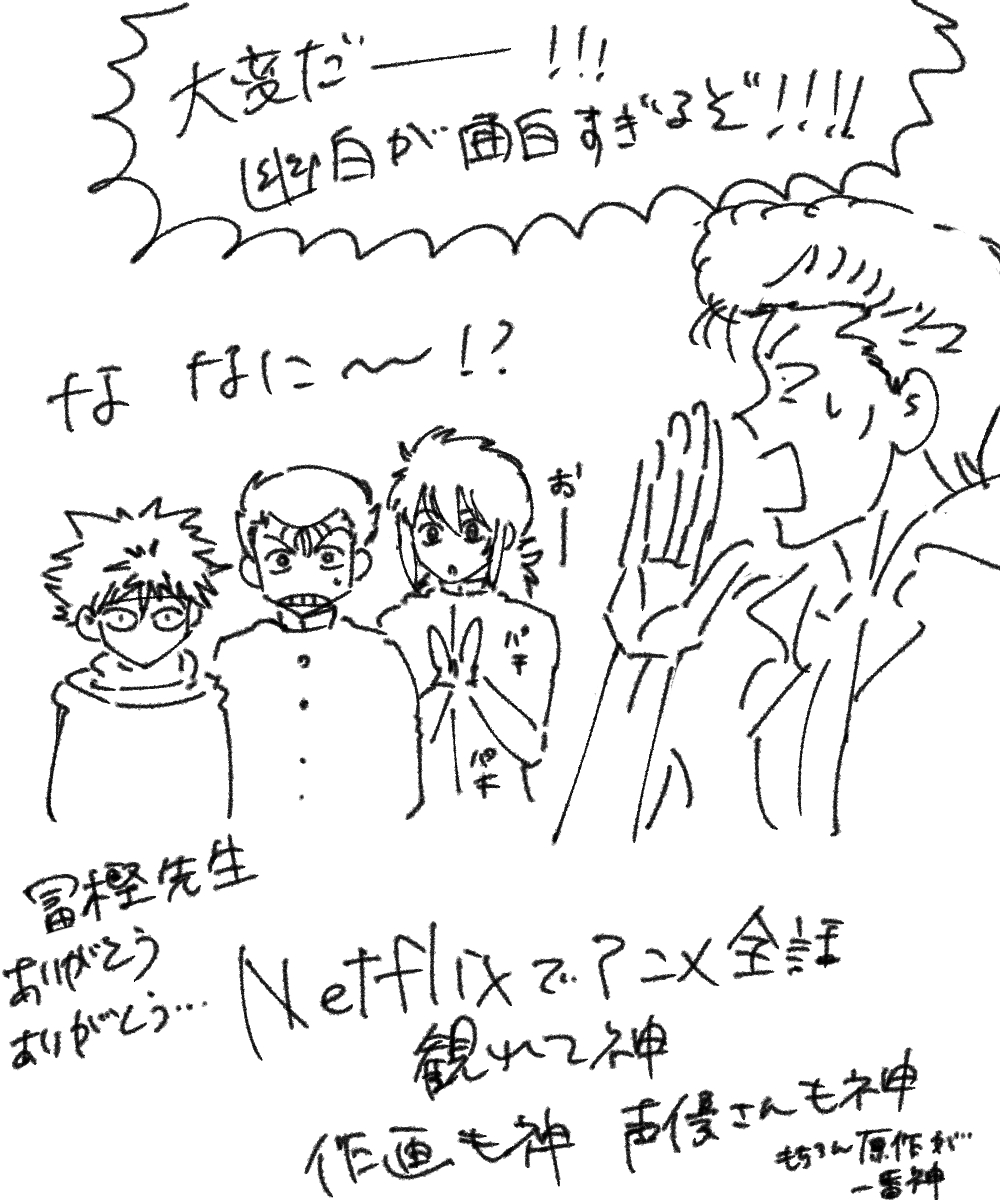 大変だー!!!
幽白が面白すぎるぞ!!!!
な なに〜!?
おー
パチ
パチ
冨樫先生
ありがとう
ありがとう…
Netflixでアニメ全話
観れて神
作画も神 声優さんも神
もちろん原作が…
一番神